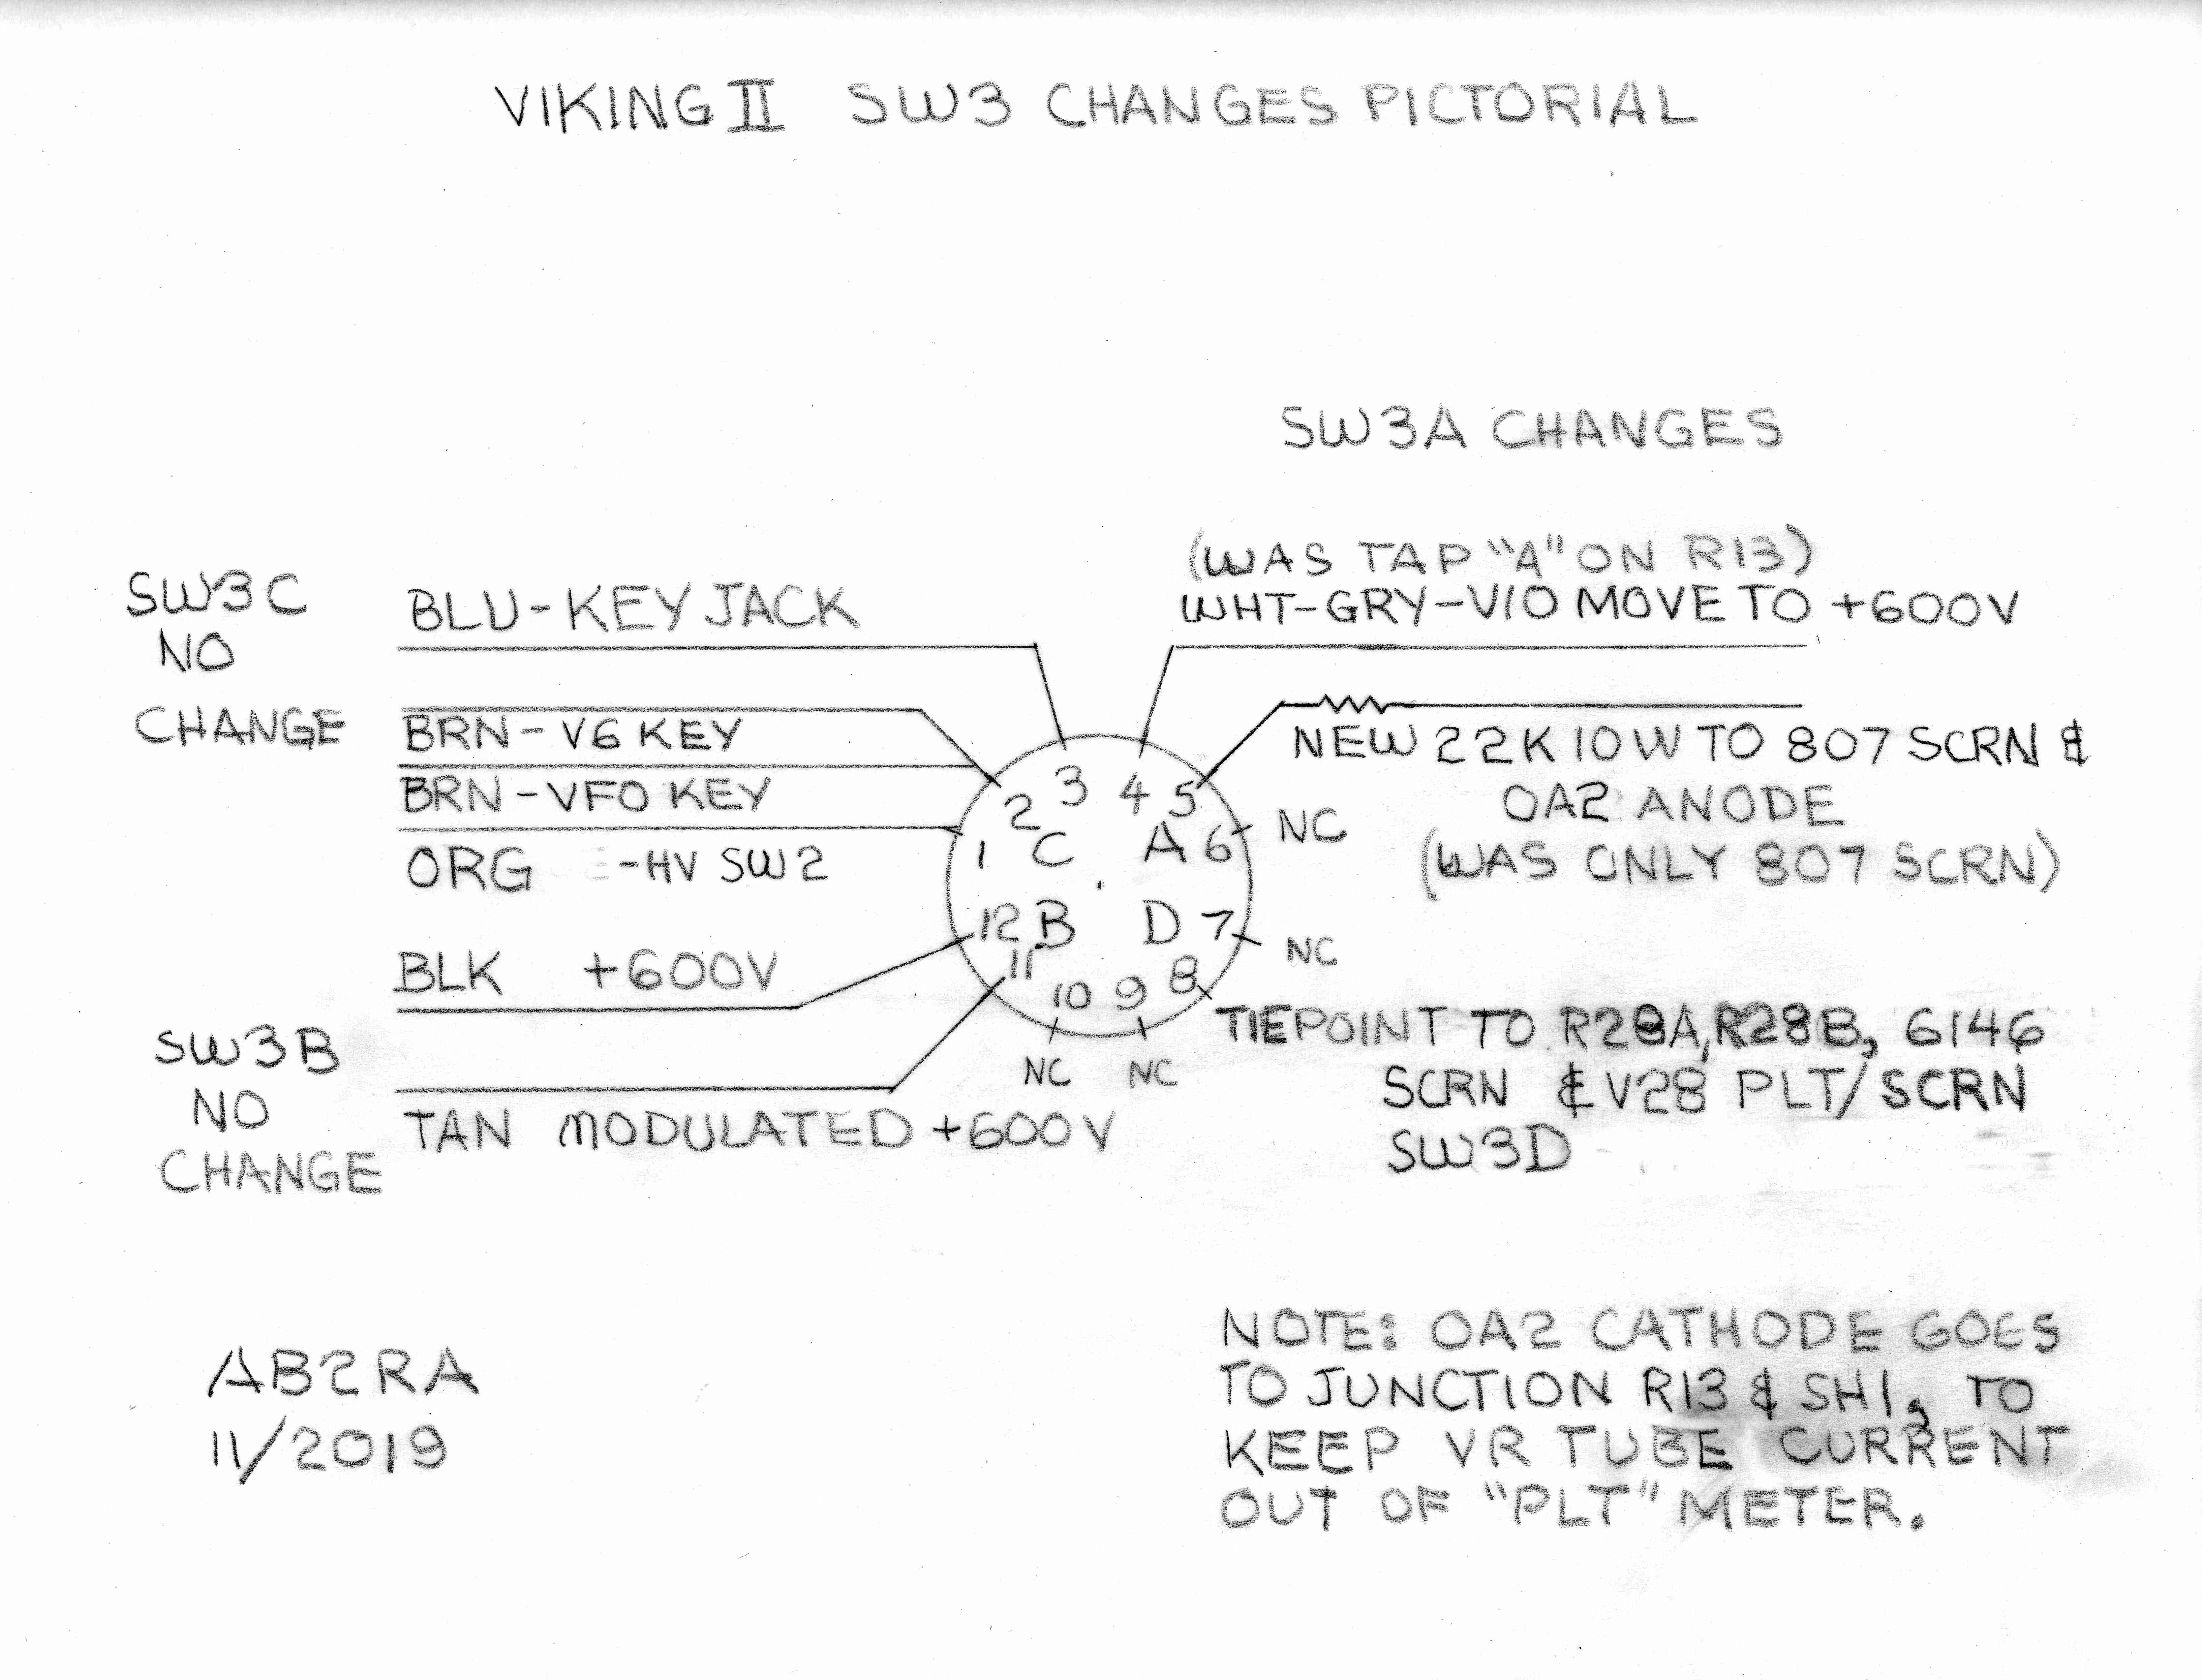 VIKING II SW3 CHANGES PICTORIAL
SW3A CHANGES
(WAS TAP "A" ON R13)
WHT-GRY-VIO MOVE TO +600V
SW3C
NO
CHANGE
BLU-KEY JACK
BRN-V6 KEY
BRN-VFO KEY
ORG -HV SW2
NEW 22K 10W TO 807 SCRN &
OA2 ANODE
(WAS ONLY 807 SCRN)
1 2 3 4 5 6
C A
NC
12 B D 7
NC
11 10 9 8
NC NC
BLK +600V
SW3B
NO
CHANGE
TAN MODULATED +600V
TIEPOINT TO R28A, R28B, 6146
SCRN & V28 PLT/SCRN
SW3D
AB2RA
11/2019
NOTE: OA2 CATHODE GOES
TO JUNCTION R13 & SH1, TO
KEEP VR TUBE CURRENT
OUT OF "PLT" METER.